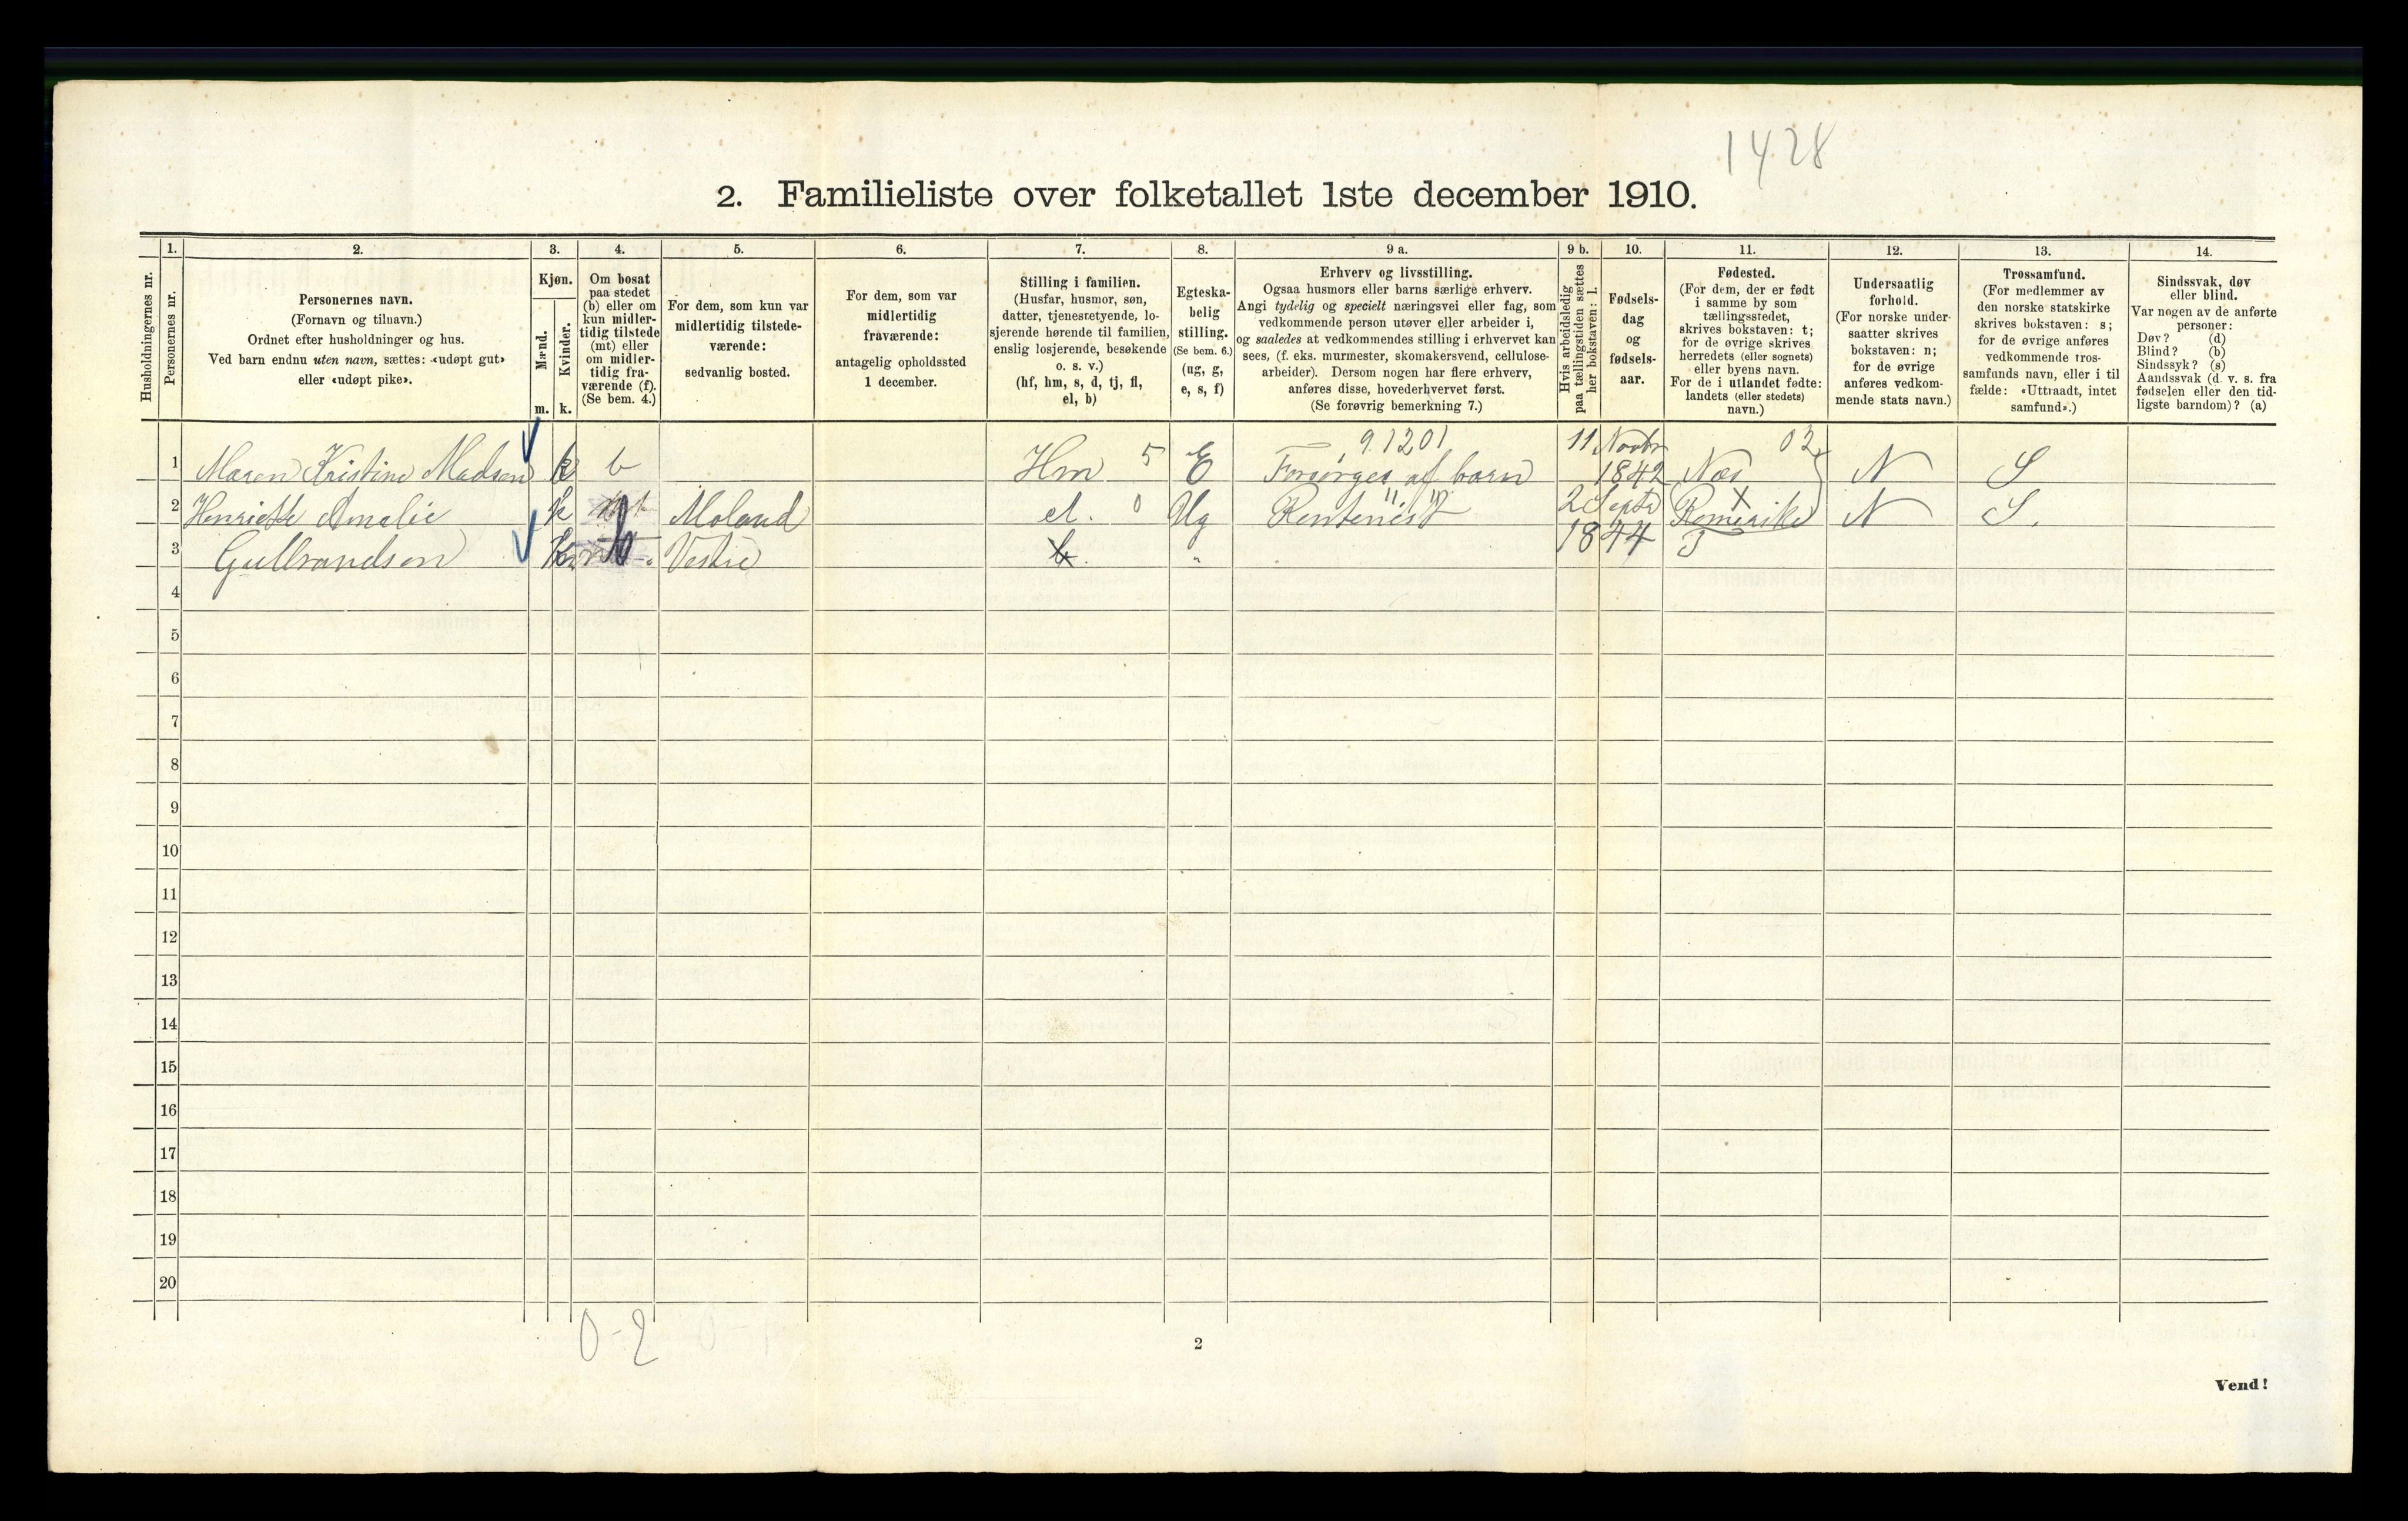 1428
2. Familieliste over folketallet 1ste december 1910.
Husholdningernes nr.
1.
Personernes nr.
2.
Personernes navn.
(Fornavn og tilnavn.)
Ordnet efter husholdninger og hus.
Ved barn endnu uten navn, sættes: «udøpt gut»
eller «udøpt pike».
3.
Kjøn.
Mænd.
Kvinder.
m. k.
4.
Om bosat
paa stedet
(b) eller om
kun midler-
tidig tilstede
(mt) eller
om midler-
tidig fra-
værende (f).
(Se bem. 4.)
5.
For dem, som kun var
midlertidig tilstede-
værende:
sedvanlig bosted.
6.
For dem, som var
midlertidig
fraværende:
antagelig opholdssted
1 december.
7.
Stilling i familien.
(Husfar, husmor, søn,
datter, tjenestetyende, lo-
sjerende hørende til familien,
enslig losjerende, besøkende
o. s. v.)
(hf, hm, s, d, tj, fl,
el, b)
8.
Egteska-
belig
stilling.
(Se bem. 6.)
(ug, g,
e, s, f)
9 a.
Erhverv og livsstilling.
Ogsaa husmors eller barns særlige erhverv.
Angi tydelig og specielt næringsvei eller fag, som
vedkommende person utøver eller arbeider i,
og saaledes at vedkommendes stilling i erhvervet kan
sees, (f. eks. murmester, skomakersvend, cellulose-
arbeider). Dersom nogen har flere erhverv,
anføres disse, hovederhvervet først.
(Se forøvrig bemerkning 7.)
9 b.
Hvis arbeidsledig
paa tællingstiden sættes
her bokstaven: l.
10.
Fødsels-
dag
og
fødsels-
aar.
11.
Fødested.
(For dem, der er født
i samme by som
tællingsstedet,
skrives bokstaven: t;
for de øvrige skrives
herredets (eller sognets)
eller byens navn.
For de i utlandet fødte:
landets (eller stedets)
navn.)
12.
Undersaatlig
forhold.
(For norske under-
saatter skrives
bokstaven: n;
for de øvrige
anføres vedkom-
mende stats navn.)
13.
Trossamfund.
(For medlemmer av
den norske statskirke
skrives bokstaven: s;
for de øvrige anføres
vedkommende tros-
samfunds navn, eller i til
fælde: «Uttraadt, intet
samfund».)
14.
Sindssvak, døv
eller blind.
Var nogen av de anførte
personer:
Døv? (d)
Blind? (b)
Sindssyk? (s)
Aandssvak (d. v. s. fra
fødselen eller den tid-
ligste barndom)? (a)
91201 11 Novbr 03
1 Maren Kristine Madsen k b Hm 5 E Forsørges af barn 1842 Næs N S
2 Henriette Amalie k Moland el. 0 Ug Rentenist 2 Septr Romerike N S.
3 Gulbrandsen Vestre 1844
4
5
6
7
8
9
10
11
12
13
14
15
16
17
18
19
20
0-2
2
Vend!